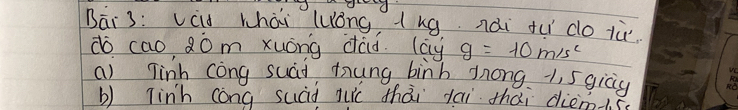 Bài 3: Vật khối lượng 1 kg rơi tự do từ
độ cao 20 m xuống đất. lấy g = 10 m/s²
a) Tính công suất trung bình trong 1,5 giây
b) Tính công suất tức thời tại thời điểm 1,5s